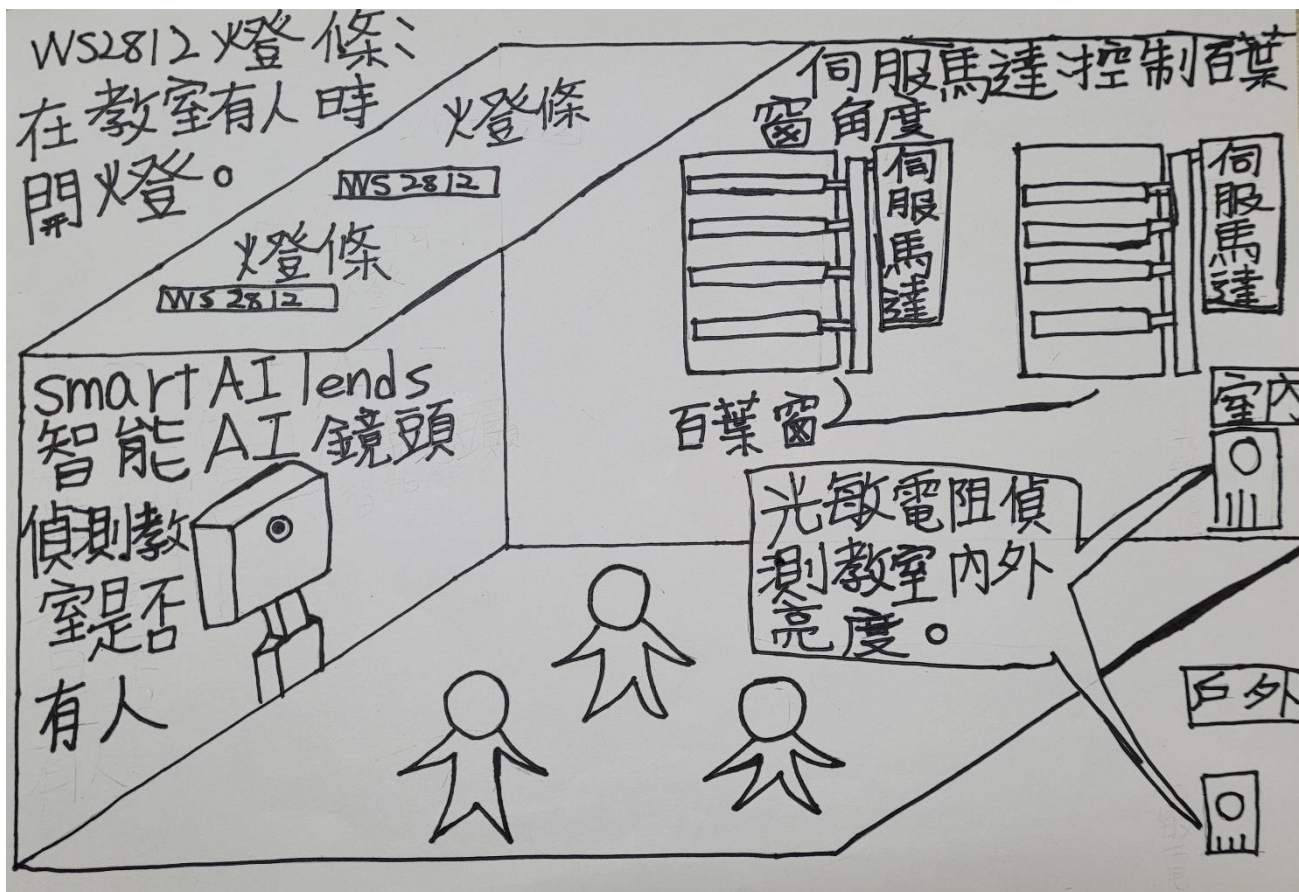 WS2812燈條:
在教室有人時
開燈。
燈條
WS2812
燈條
WS2812
伺服馬達:控制百葉
窗角度
伺服馬達
伺服馬達
百葉窗
smart AI lends
智能AI鏡頭
偵測教
室是否
有人
光敏電阻偵
測教室內外
亮度。
室內
戶外